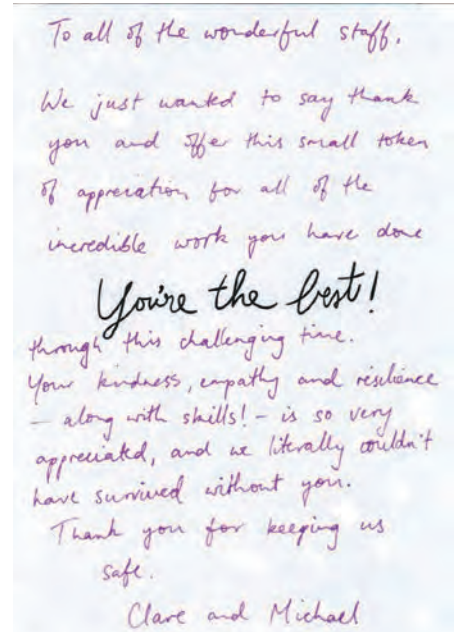 To all of the wonderful staff,
We just wanted to say thank
you and offer this small token
of appreciation for all of the
incredible work you have done
You're the best!
through this challenging time.
Your kindness, empathy and resilience
– along with skills! – is so very
appreciated, and we literally couldn't
have survived without you.
Thank you for keeping us
safe.
Clare and Michael